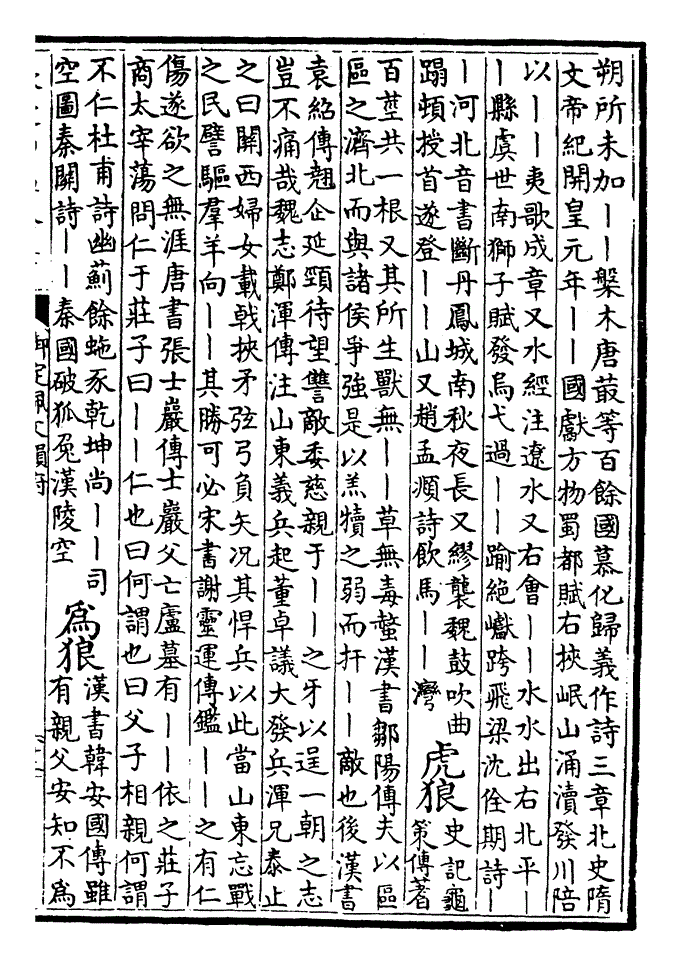 朔所未加——槃木唐菆等百餘國慕化歸義作詩三章北史隋
文帝紀開皇元年——國獻方物蜀都賦右挾岷山涌瀆發川陪
以——夷歌成章又水經注遼水又右會——水水出右北平—
—縣虞世南獅子賦發烏弋過——踰絶巘跨飛梁沈佺期詩—
—河北音書斷丹鳳城南秋夜長又繆襲魏鼓吹曲
蹋頓授首遂登——山又趙孟頫詩飲馬——灣
虎狼
史記龜
策傳蓍
百莖共一根又其所生獸無——草無毒螫漢書鄒陽傳夫以區
區之濟北而與諸侯爭強是以羔犢之弱而扞——敵也後漢書
袁紹傳翹企延頸待望讐敵委慈親于——之牙以逞一朝之志
豈不痛哉魏志鄭渾傳注山東義兵起董卓議大發兵渾兄泰止
之曰關西婦女載戟挾矛弦弓負矢况其悍兵以此當山東忘戰
之民譬驅羣羊向——其勝可必宋書謝靈運傳鑑——之有仁
傷遂欲之無涯唐書張士巖傳士巖父亡廬墓有——依之莊子
商太宰蕩問仁于莊子曰——仁也曰何謂也曰父子相親何謂
不仁杜甫詩幽薊餘蛇豕乾坤尚——司
空圖秦關詩——秦國破狐兔漢陵空
為狼
漢書韓安國傳雖
有親父安知不為
御定佩文韻府